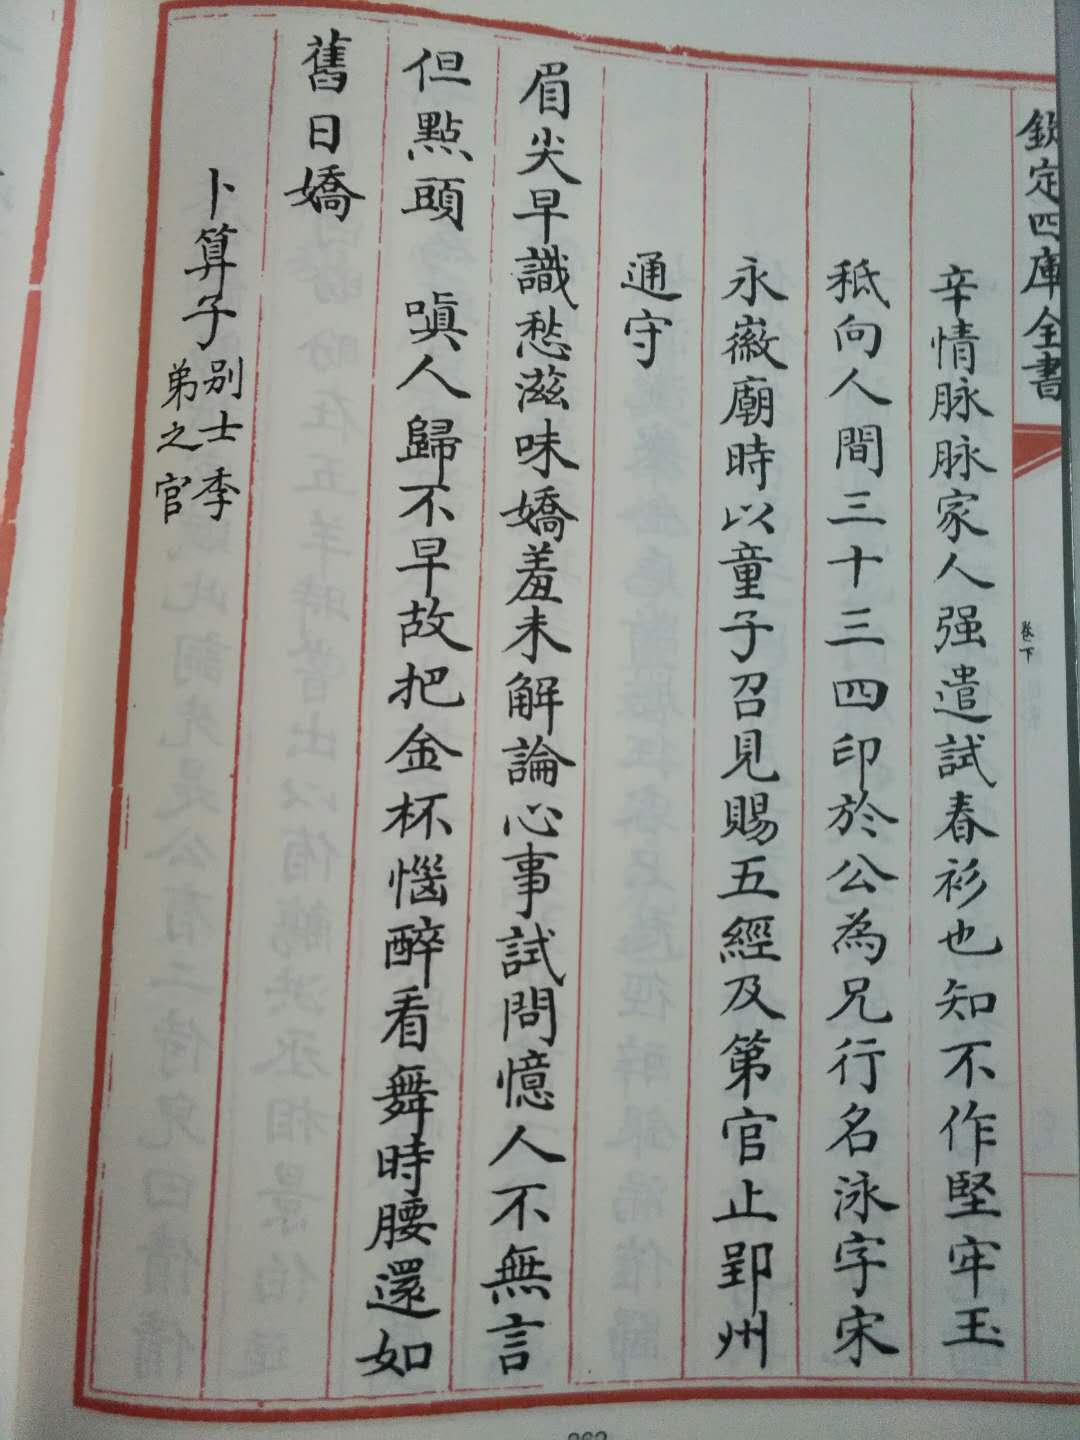 欽定四庫全書
卷下
辛情脉脉家人强遣試春衫也知不作堅牢玉
秪向人間三十三四印於公為兄行名泳字宋
永徽廟時以童子召見賜五經及第官止郢州
通守
眉尖早識愁滋味嬌羞未解論心事試問憶人不無言
但點頭　嗔人歸不早故把金杯惱醉看舞時腰還如
舊日嬌
卜算子别士季
弟之官